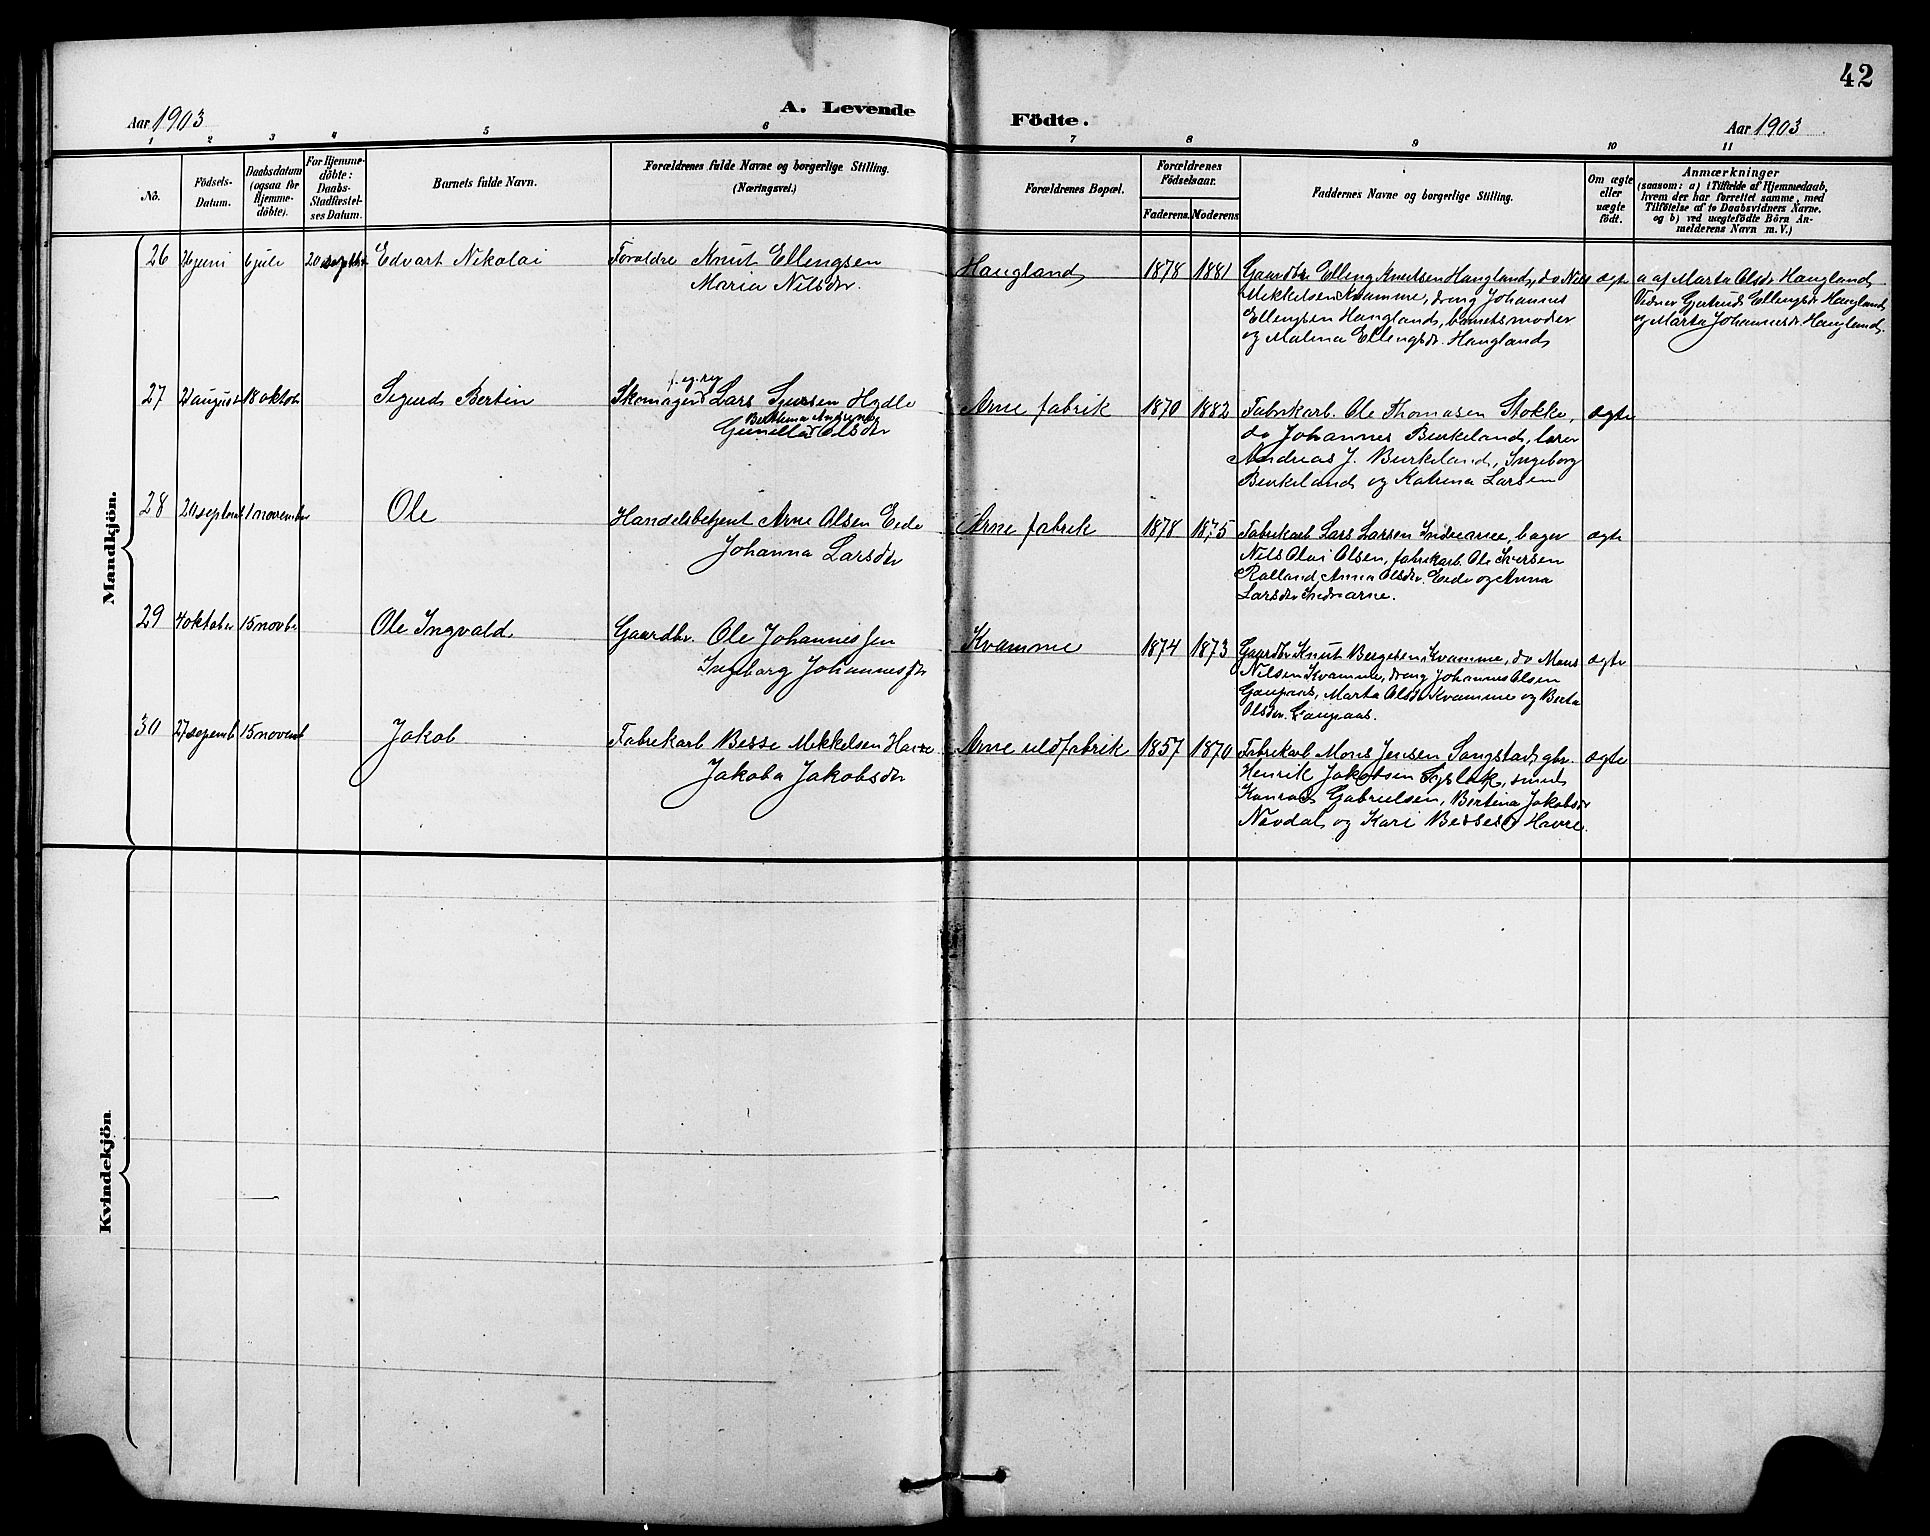 42
Aar 1903
A. Levende
Födte.
Aar 1903
1 2 3 4 5 6 7 8 9 10 11
No.
Födsels-
Datum.
Daabsdatum
(ogsaa for
Hjemme-
döbte).
For Hjemme-
döbte:
Daabs-
Stadfæstel-
ses Datum.
Barnets fulde Navn.
Forældrenes fulde Navne og borgerlige Stilling.
(Næringsvei.)
Forældrenes Bopæl.
Forældrenes
Födselsaar.
Faderens. Moderens
Faddernes Navne og borgerlige Stilling.
Om ægte
eller
uægte
födt.
Anmærkninger
(saasom: a) i Tilfælde af Hjemmedaab,
hvem der har forrettet samme, med
Tilföielse af to Daabsvidners Navne.
og b) ved uægtefödte Börn An-
melderens Navn m. V.)
Mandkjön.
26 juni 6 juli 20 septbr Edvart Nikolai
Foreldre Knut Ellengsen
Maria Nilsdr.
Haugland 1878 1881
Gaardbr Elling Knutsen Haugland, do Nils
Mikkelsen Kvamme, dreng Johannes
Ellengsen Haugland, barnets moder
og Malena Ellengsdr. Haugland
ægte
a af Marta Olsdr Haugland
Vidner Gjertrud Ellengsdr Haugland
og Marta Johannesdr. Haugland.
27 21 august 18 oktob Sigurd Bertin
Skomager Lars Sjursen Hydle
Gunilla Olsdr
Arne fabrik 1870 1882
Fabrikarb. Ole Thomasen Stokke,
do Johannes Birkeland, lærer
Andreas J. Birkeland, Ingeborg
Birkeland og Katrina Larsen
ægte
28 20 septemb 1 november Ole
Handelsbetjent Arne Olsen Eide
Johanna Larsdr
Arne fabrik 1878 1875
Fabrikarb Lars Larsen Indrearne, bager
Nils Olai Olsen, fabrikarb. Ole Iversen
Rolland, Anna Olsdr. Eide og Anna
Larsdr Indrearne.
ægte
29 4 oktober 15 novbr Ole Ingvald
Gaardbr. Ole Johannessen
Ingeborg Johannesdr
Kvamme 1874 1873
Gaardbr Knut Bergesen Kvamme, do Mons
Nilsen Kvamme, dreng Johannes Olsen
Gaupaas, Marta Olsdr Kvamme og Berta
Olsdr. Gaupaas.
ægte
30 27 septemb 15 novemb Jakob
Fabrikarb Besse Mikkelsen Havre
Jakoba Jakobsdr
Arne uldfabrik 1857 1870
Fabrikarb Mons Jensen Songstad, gbr.
Henrik Jakobsen, smed
Konrad Gabrielsen, Bertina Jakobsdr
Novdal, og Kari Bessesdr Havre.
ægte
Kvindekjön.